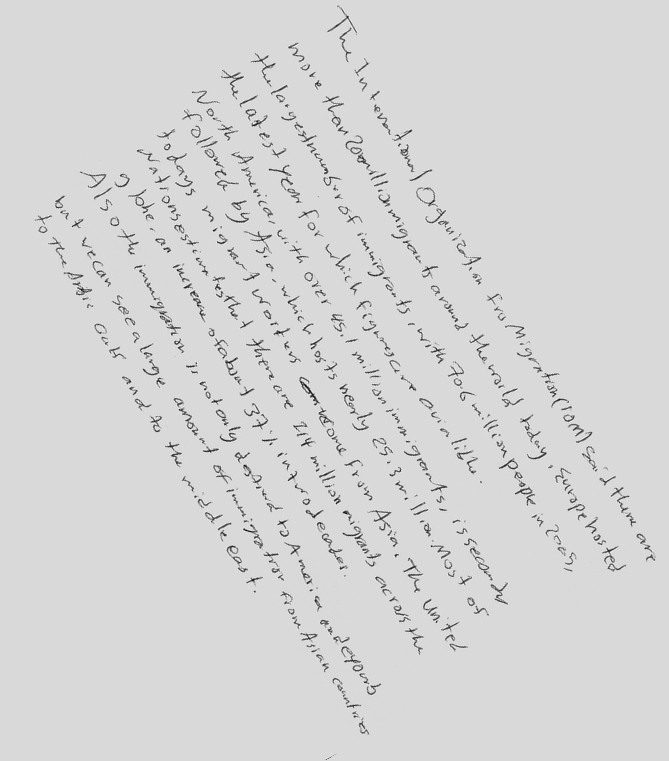 The International Organization fro Migration (IOM) said there are
more than 200 million migrants around the world today, Europe hosted
the largest number of immigrants, with 70.6 million people in 2005,
the latest year for which figures are availible.
North America, with over 45.1 million immigrants, is second
followed by Asia, which hosts nearly 25.3 million. Most of
todays migrant workers come from Asia. The United
Nations estimates that there are 214 million migrants across the
globe, an increase of about 37% in two decades.
Also the immigration is not only destined to America and
but we can see a large amount of immigration from Asian countries
to the and to the middle east.